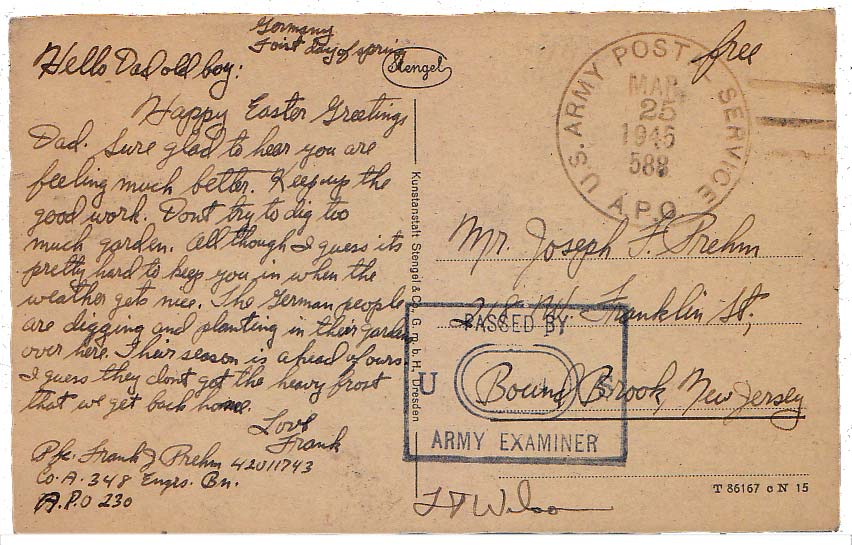 Germany
First day of spring
Hello Dad old boy:
Happy Easter Greetings
Dad. Sure glad to hear you are
feeling much better. Keep up the
good work. Dont try to dig too
much garden. All though I guess its
pretty hard to keep you in when the
weather gets nice. The German people
are digging and planting in their garden
over here. Their season is ahead of ours
I guess they dont get the heavy frost
that we get back home.
Love
Frank
Pfc. Frank J Prehm 42011743
Co. A. 348 Engrs. Bn.
A.P.O 230
Stengel
Kunstanstalt Stengel & Co. G. m. b. H. Dresden
free
U.S. ARMY POSTAL SERVICE
MAR
25
1945
588
A.P.O.
Mr. Joseph F. Prehm
W. Franklin St,
Bound Brook, New Jersey
PASSED BY
U S
ARMY EXAMINER
Wilson
T 86167 c N 15